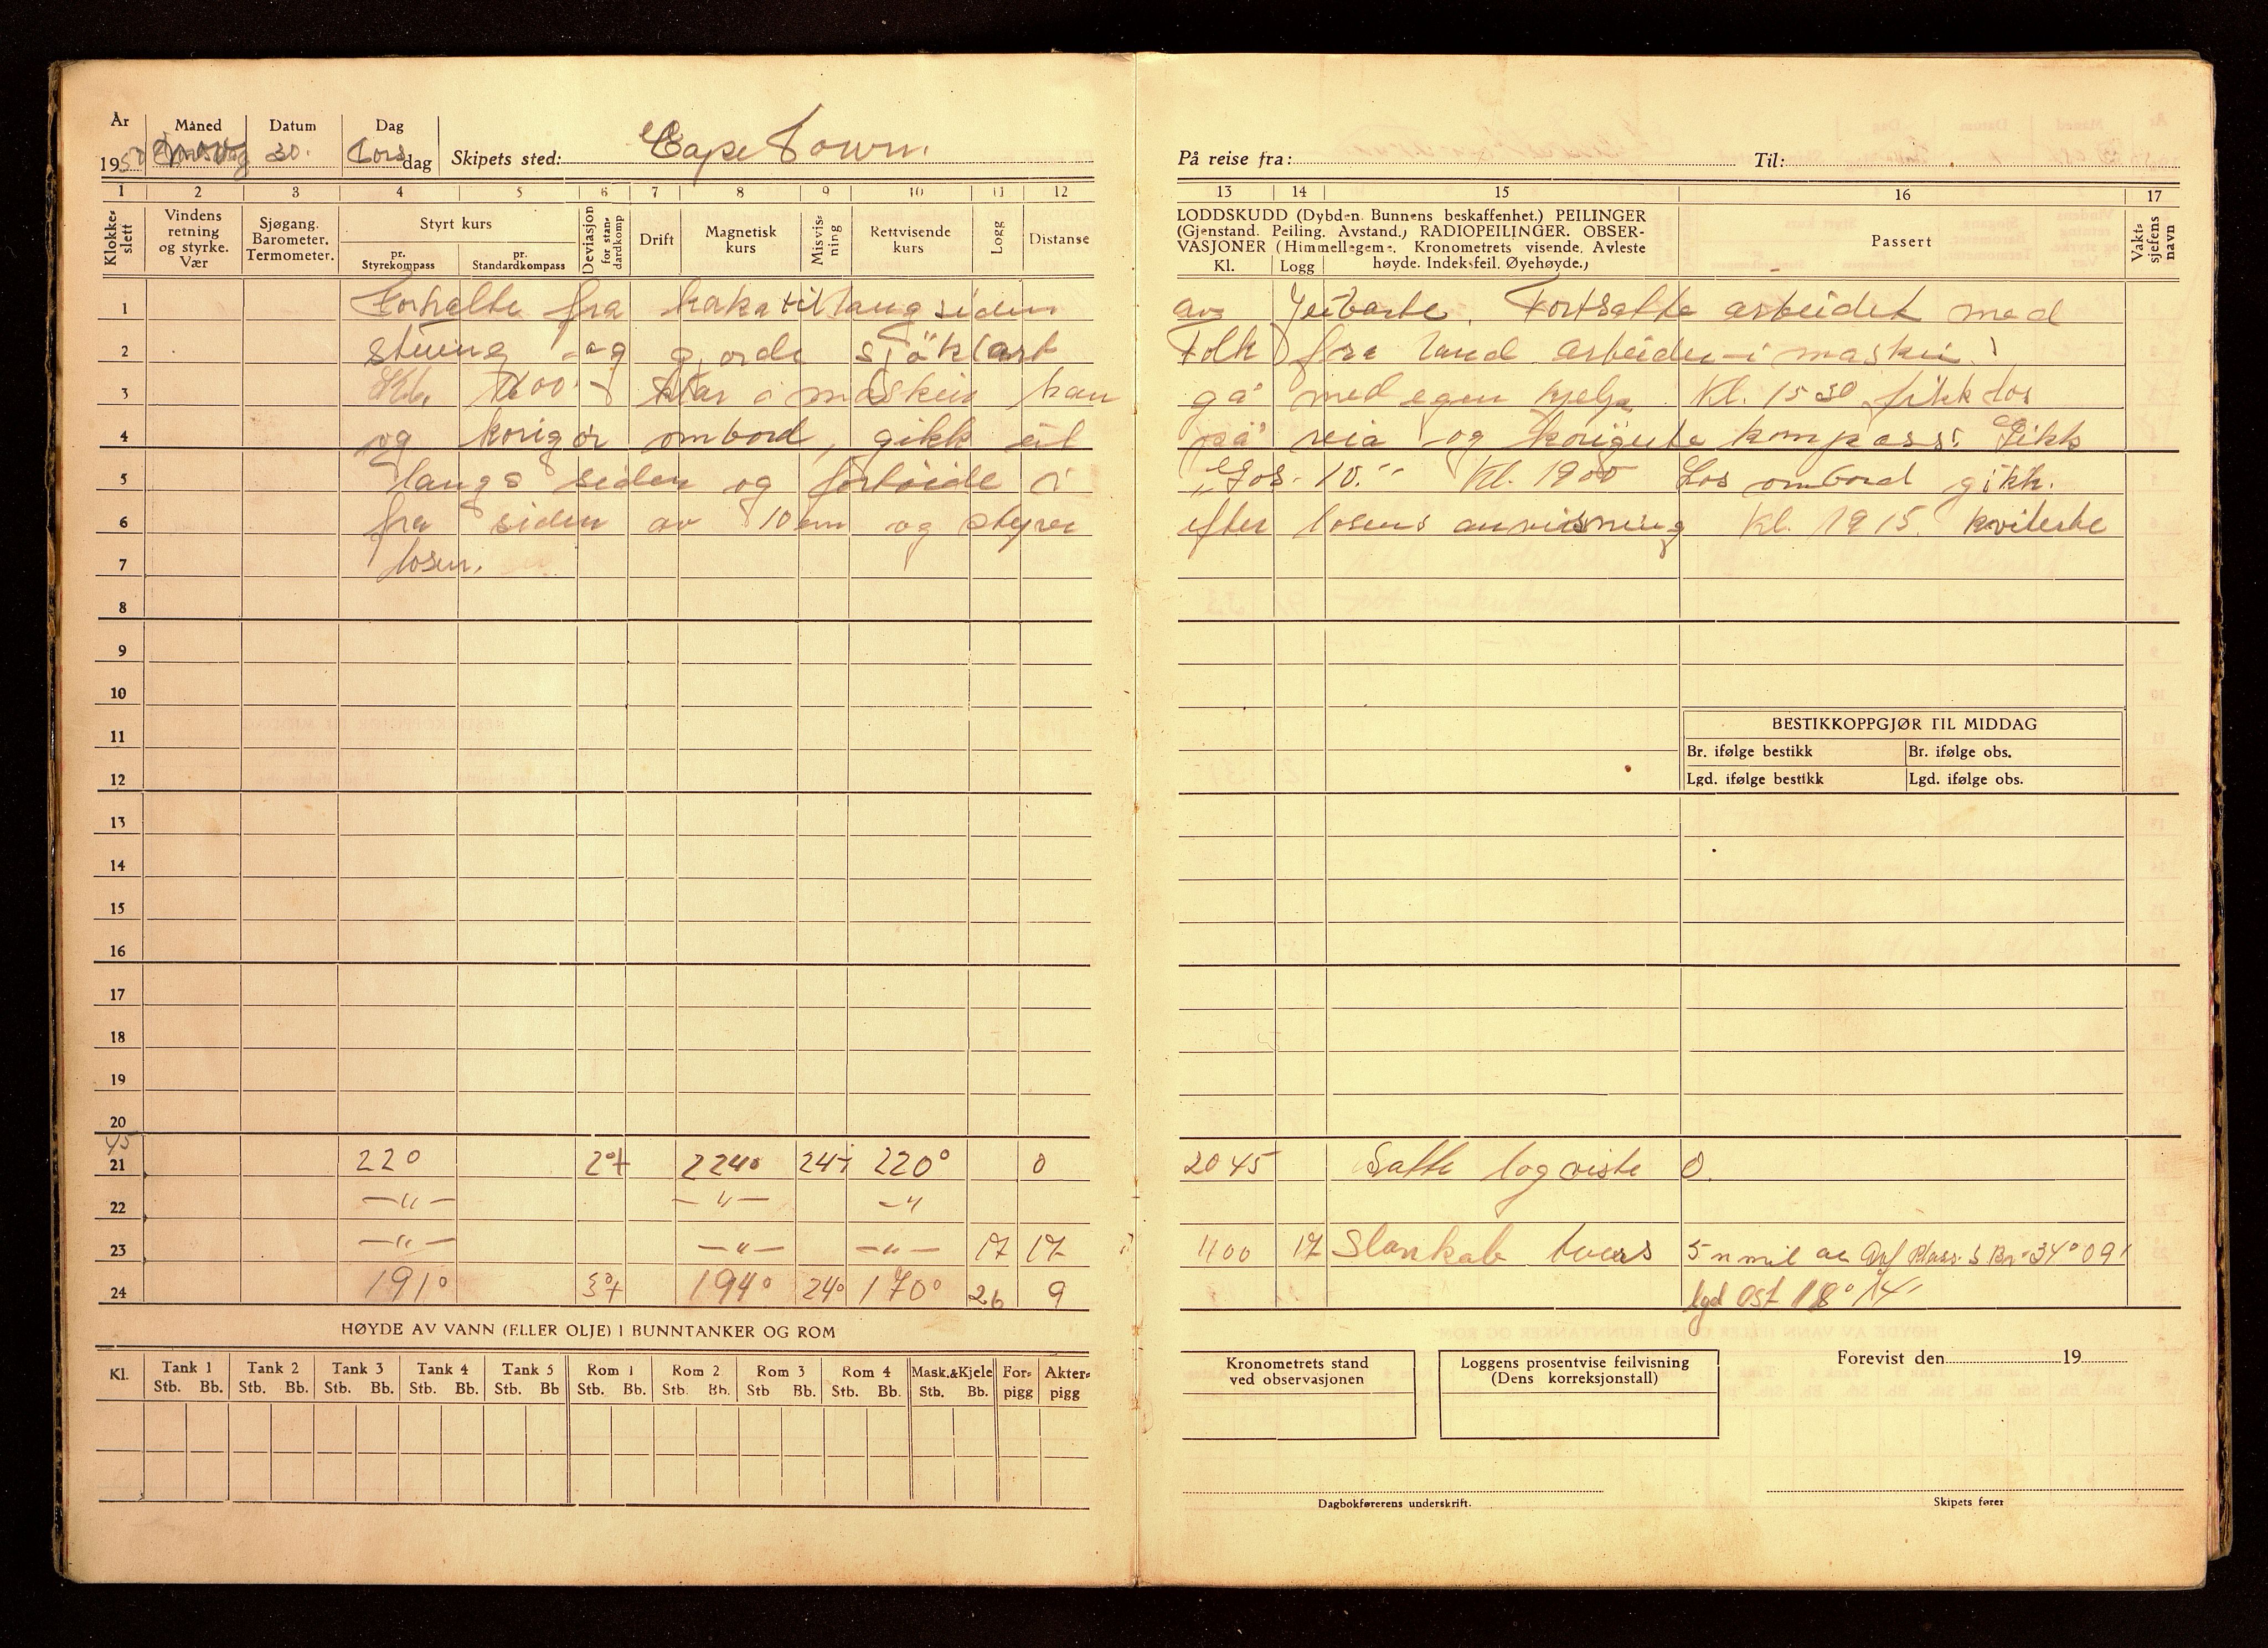 År Måned Datum Dag
1950 nov 30. Torsdag Skipets sted: Cape Town. På reise fra: Til:
1 2 3 4 5 6 7 8 9 10 11 12 13 14 15 16 17
Klokke-slett Vindens retning og styrke. Vær Sjøgang. Barometer. Termometer. Styrt kurs pr. Styrekompass pr. Standardkompass Deviasjon for standardkomp Drift Magnetisk kurs Misvisning Rettvisende kurs Logg Distanse
LODDSKUDD (Dybden. Bunnens beskaffenhet.) PEILINGER
(Gjenstand. Peiling. Avstand.) RADIOPEILINGER. OBSER-
VASJONER (Himmellegeme. Kronometrets visende. Avleste
Kl. Logg høyde. Indeksfeil. Øyehøyde.)
Passert
Vakt-sjefens navn
1 Forhalte fra kaka til langsiden av Jeibarte. Fortsatte arbeidet med
2 stuing og gjorde sjöklart Folk fra land arbeider i maskin.
3 Kl. 1200 klar i maskin kan gå med egen hjelp Kl. 1530 fikk los
4 og korigør ombord, gikk ut på reia og korigerte kompass. Gikk
5 langs siden og fortøide i "Gos. 10." Kl. 1900 Los ombord gikk.
6 fra siden av 10ern og styrer efter losens anvisning Kl. 1915. kviterte
7 losen.
8
9
10
11
12
BESTIKKOPPGJØR TIL MIDDAG
Br. ifølge bestikk Br. ifølge obs.
Lgd. ifølge bestikk Lgd. ifølge obs.
13
14
15
16
17
18
19
20
45
21 220 2°+ 224° 24- 220° 0 2045 Satte log viste 0.
22 —"— —"— —"
23 —"— —"— —"— 17 17 1100 17 Slankab tvers 5 n mil av S Br. 34°09'
24 191° 3°+ 194° 24° 170° 26 9 lgd Ost 18° 14'
HØYDE AV VANN (ELLER OLJE) I BUNNTANKER OG ROM
Kl. Tank 1 Tank 2 Tank 3 Tank 4 Tank 5 Rom 1 Rom 2 Rom 3 Rom 4 Mask.&Kjele For-pigg Akter-pigg
Stb. Bb. Stb. Bb. Stb. Bb. Stb. Bb. Stb. Bb Stb. Bb. Stb. Bb. Stb Bb. Stb. Bb. Stb. Bb.
Kronometrets stand
ved observasjonen
Loggens prosentvise feilvisning
(Dens korreksjonstall)
Forevist den 19
Dagbokførerens underskrift.
Skipets fører